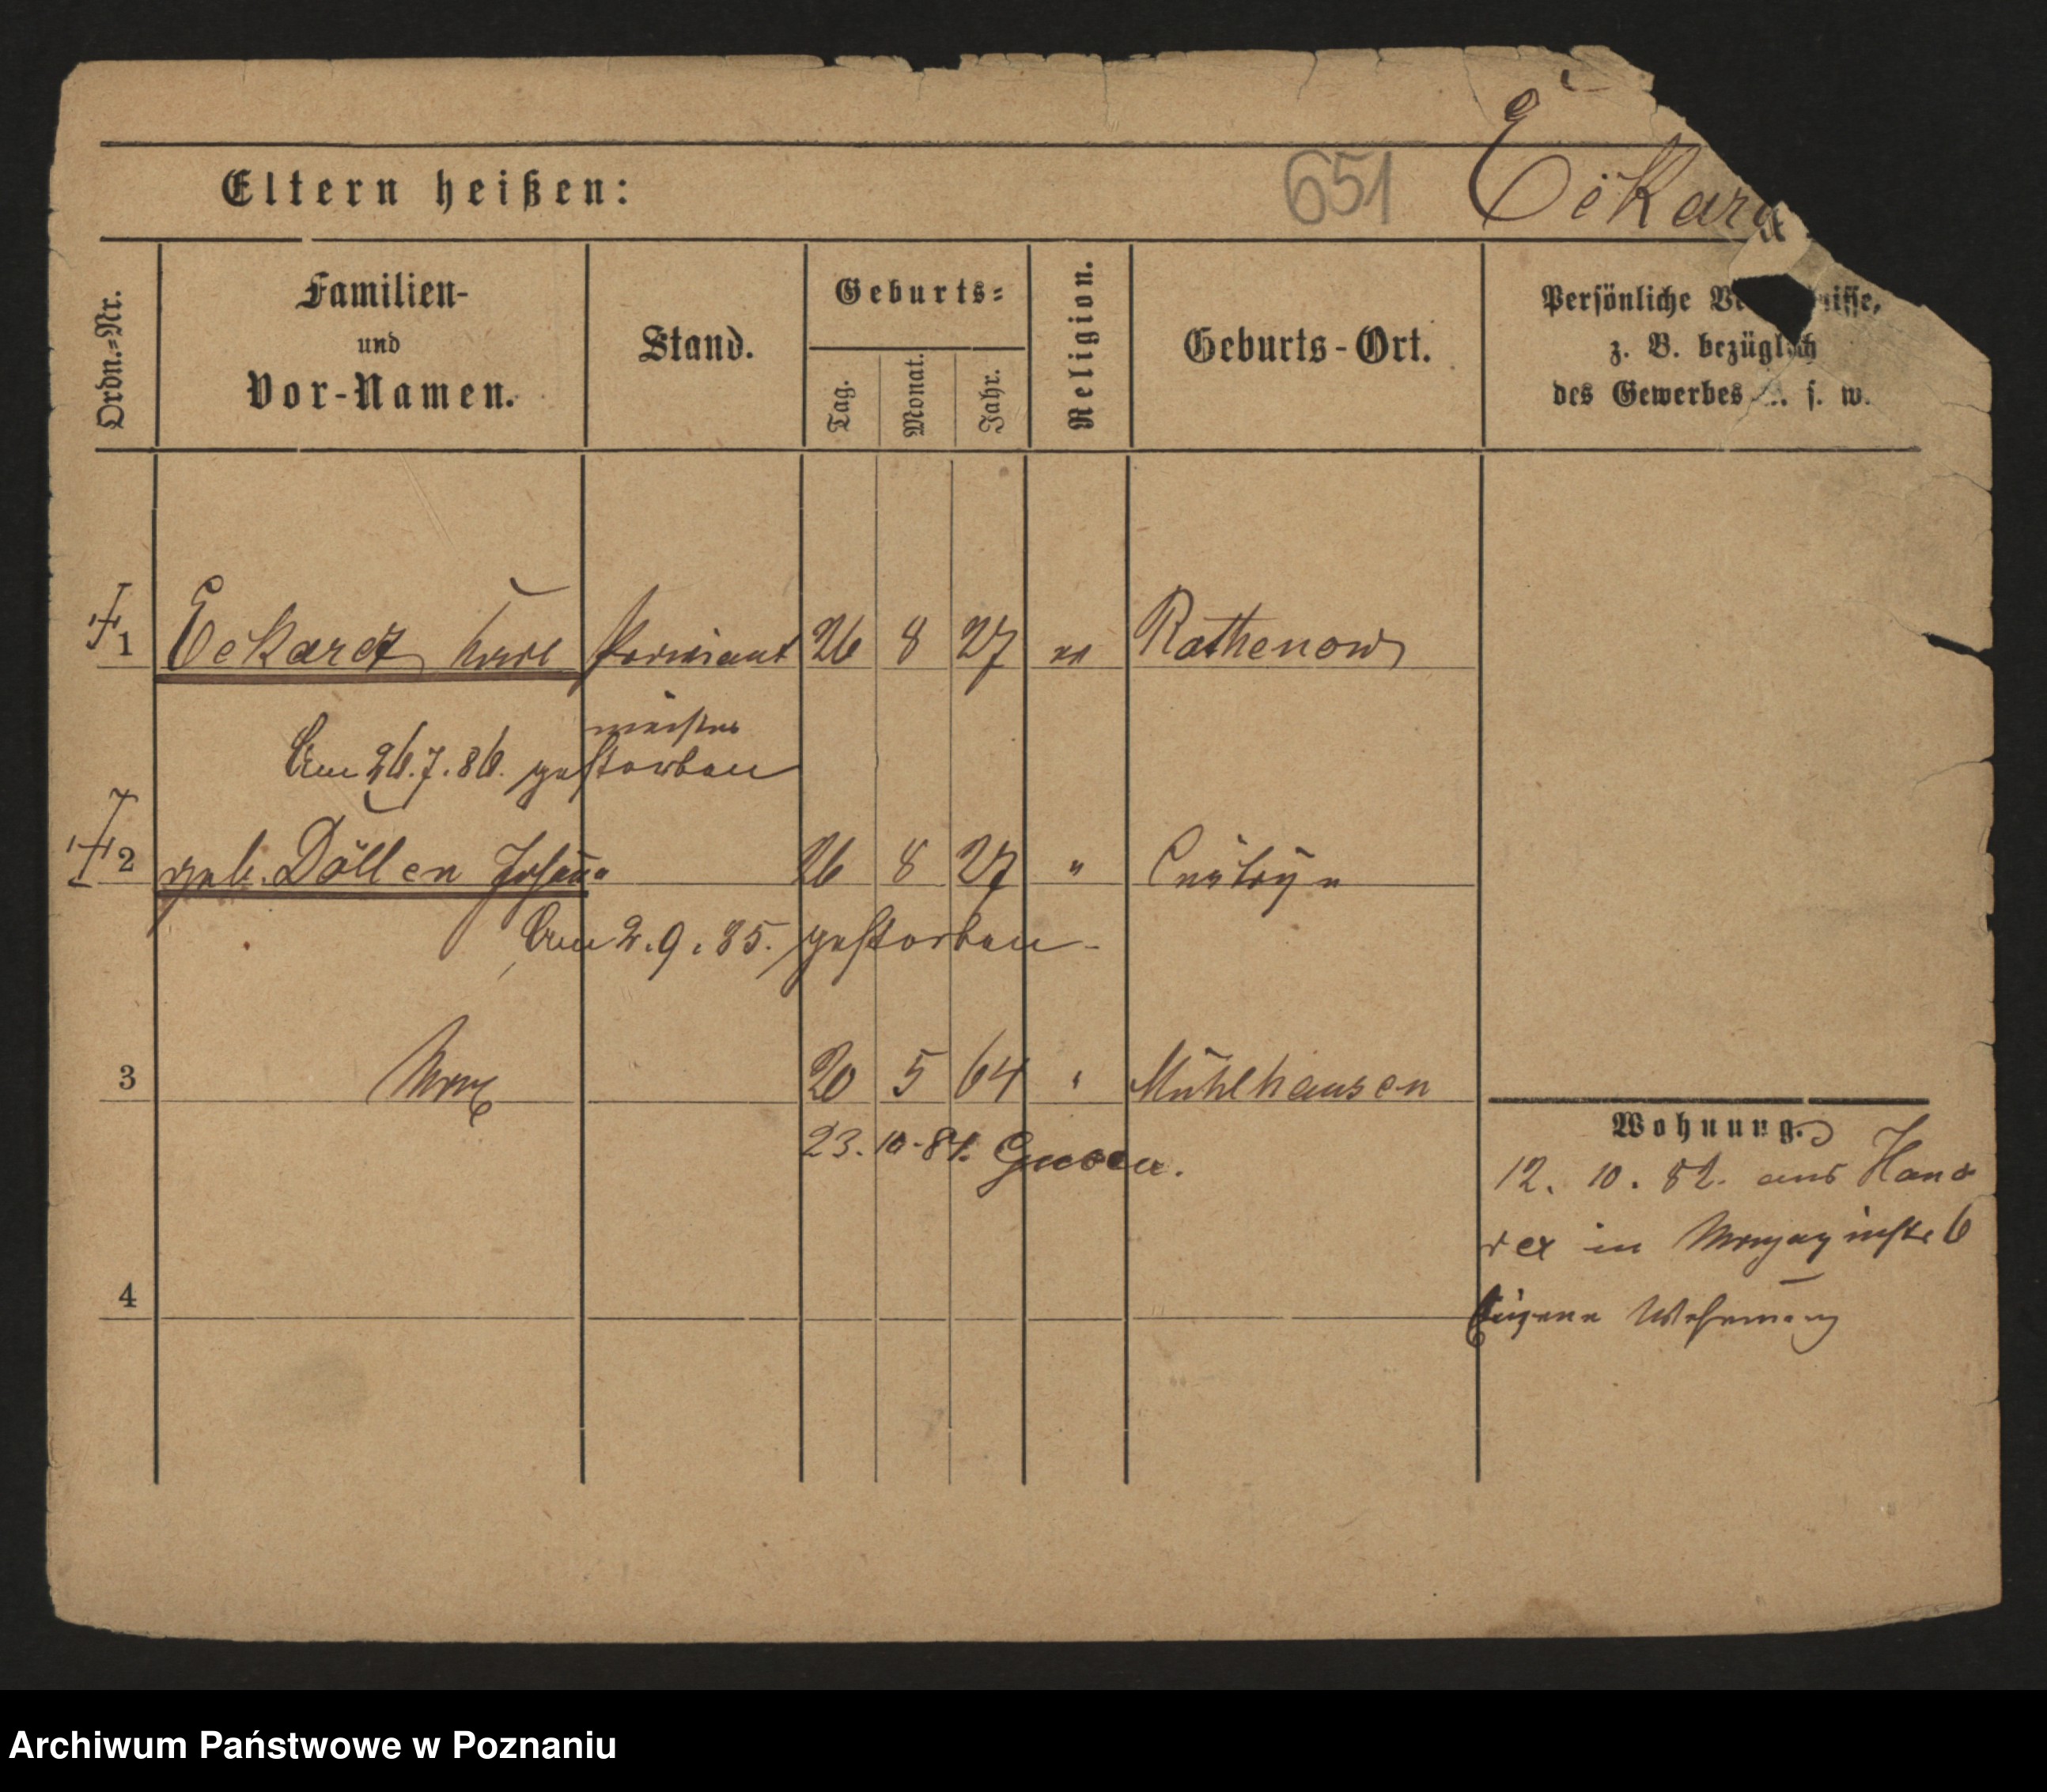 651 Eckardt
Eltern heißen:
Ordn.=Nr.
Familien-
und
Vor-Namen.
Stand.
Geburts=
Tag.
Monat.
Jahr.
Religion.
Geburts-Ort.
Persönliche
z. B. bezüglich
des Gewerbes u. s. w.
1 Eckardt Karl Proviant 26 8 27 ev Rathenow
meister
Am 26.7.86. gestorben
2 geb. Döllen Johanna 26 8 27 " Cüstrin
Am 2.9.85. gestorben
3 Max 20 5 64 " Mühlhausen
23.10.84. Guben.
Wohnung.
12. 10. 82. aus Hano
ver in Magazinstr 6
4
Eigene Wohnung
Archiwum Państwowe w Poznaniu